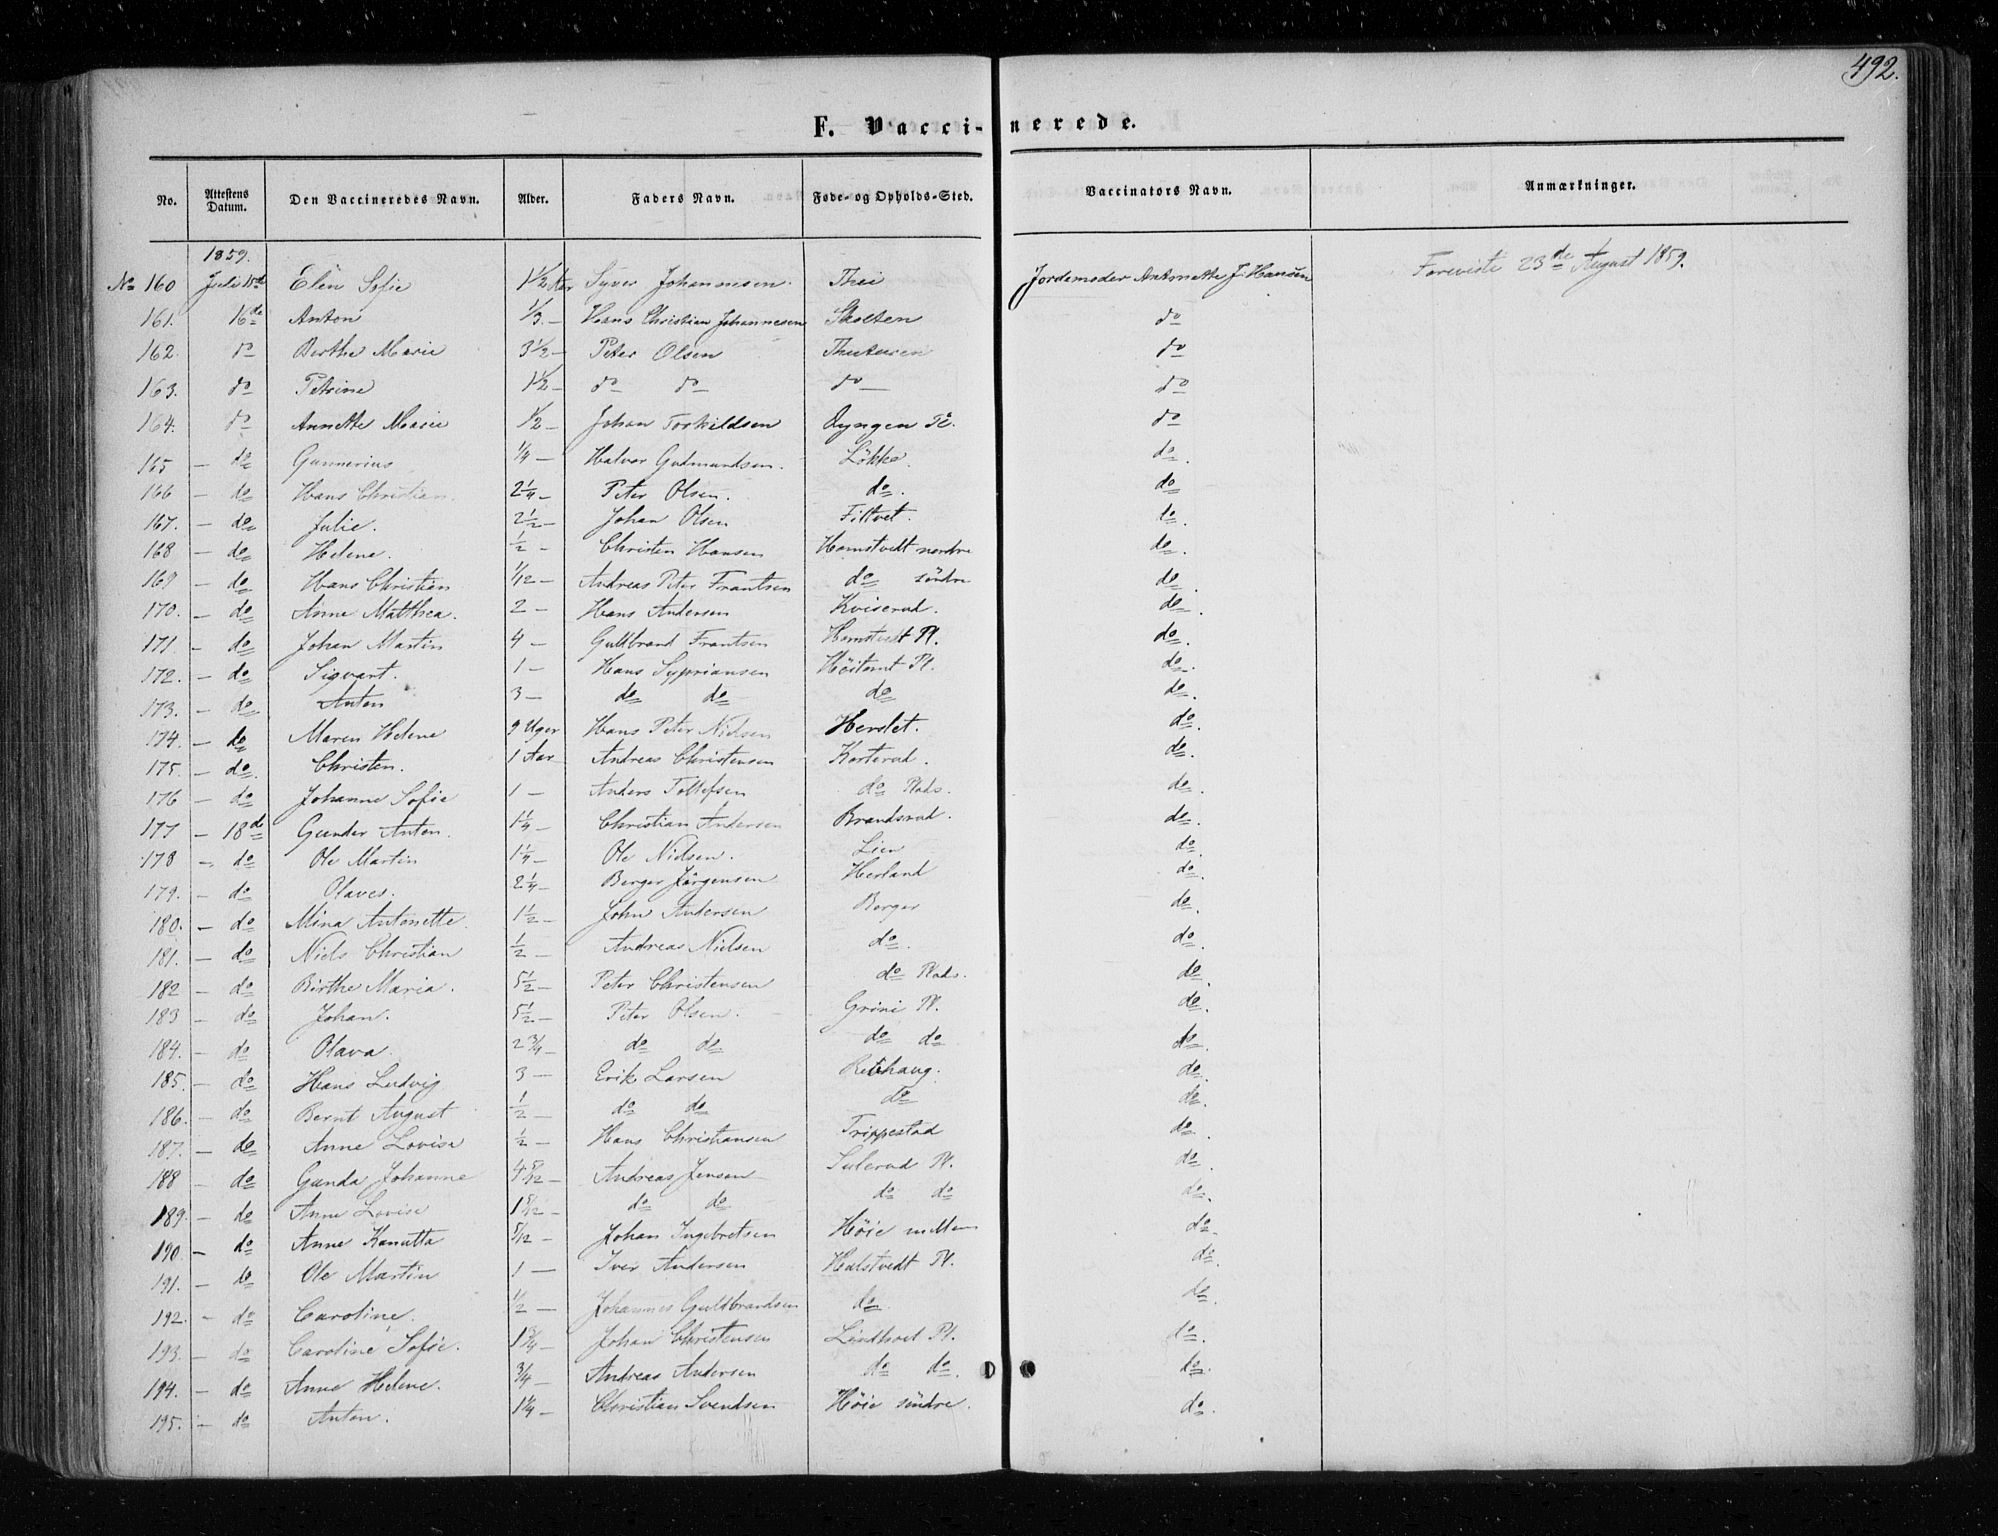 492.
F. Vaccinerede.
No. Attestens Datum. Den Vaccineredes Navn. Alder. Faders Navn. Føde- og Opholds-Sted. Vaccinators Navn. Anmærkninger.
1859.
No 160 Juli 15de Elen Sofie 1 1/2 Aar Syver Johannesen. Thei Jordemoder Antonette J. Hansen Foreviste 23de August 1859.
161. 16de Anton 1/3 - Hans Christian Johannesen Skolten do
162. do Berthe Marie 3 1/2 - Peter Olsen do
163. do Petrine 1 1/2 - do do do do
164. do Annette Marie 1/2 - Johan Torkildsen Dyngen Pl. do
165 - do Gunnerius 1/4 - Halvor Gudmundsen. Løkke. do.
166 - do Hans Christian. 2 1/4 - Peter Olsen. do. do
167. - do Julie. 2 1/2 - Johan Olsen Filtvet. do.
168 - do Helene. 1/2 - Christen Hansen Homstvedt nordre do.
169 - do Hans Christian 1/12 - Andreas Peter Frantsen do søndre do.
170. - do Anne Matthea. 2 - Hans Andersen Kviserud. do.
171. - do Johan Martin 4 - Guldbrand Frantsen Homstvedt Pl. do.
172. - do Sigvart. 1 - Hans Sypriansen Høitomt Pl. do.
173. - do Anton 3 - do do do do.
174. - do Maren Helene 9 Uger Hans Peter Nielsen Herslet. do.
175. - do. Christen. 1 Aar Andreas Christensen Korterud. do.
176 - do Johanne Sofie 1 - Anders Tollefsen do Plads. do.
177 - 18de Gunder Anton. 1 1/4 - Christian Andersen Brandsrud. do.
178 - do Ole Martin 1 1/4 - Ole Nielsen. Lien do.
179. - do Olaves. 2 1/4 - Berger Jørgensen Herland do.
180. - do Mina Antonette. 1 1/2 - John Andersen Berger do.
181. - do Niels Christian 1/2 - Andreas Nielsen do. do.
182 - do Birthe Maria. 5 1/2 - Peter Christensen do Plads. do.
183 - do Johan. 5 1/2 - Peter Olsen. Grøni Pl. do.
184. - do Olava. 2 3/4 - do do do do do.
185. - do Hans Ludvig 3 - Erik Larsen do.
186. - do Bernt August 1/2 - do do do do.
187. - do Anne Lovise 1/2 - Hans Christiansen Trippestad do.
188 - do Gunda Johanne 4 5/12 - Andreas Jensen Sulerud Pl. do.
189. - do Anne Lovise 1 5/12 - do do do do do.
190 - do Anne Kanutta 5/12 - Johan Ingebretsen Høie mellem do.
191. - do Ole Martin 1 - Iver Andersen Halstvedt Pl. do.
192. - do Caroline. 1/2 - Johannes Guldbrandsen do. do.
193. - do Caroline Sofie. 1 3/4 - Johan Christensen Pl. do.
194. - do Anne Helene. 3/4 - Andreas Andersen do do. do.
195. - do Anton. 1 1/4 - Christian Svendsen Høie søndre. do.